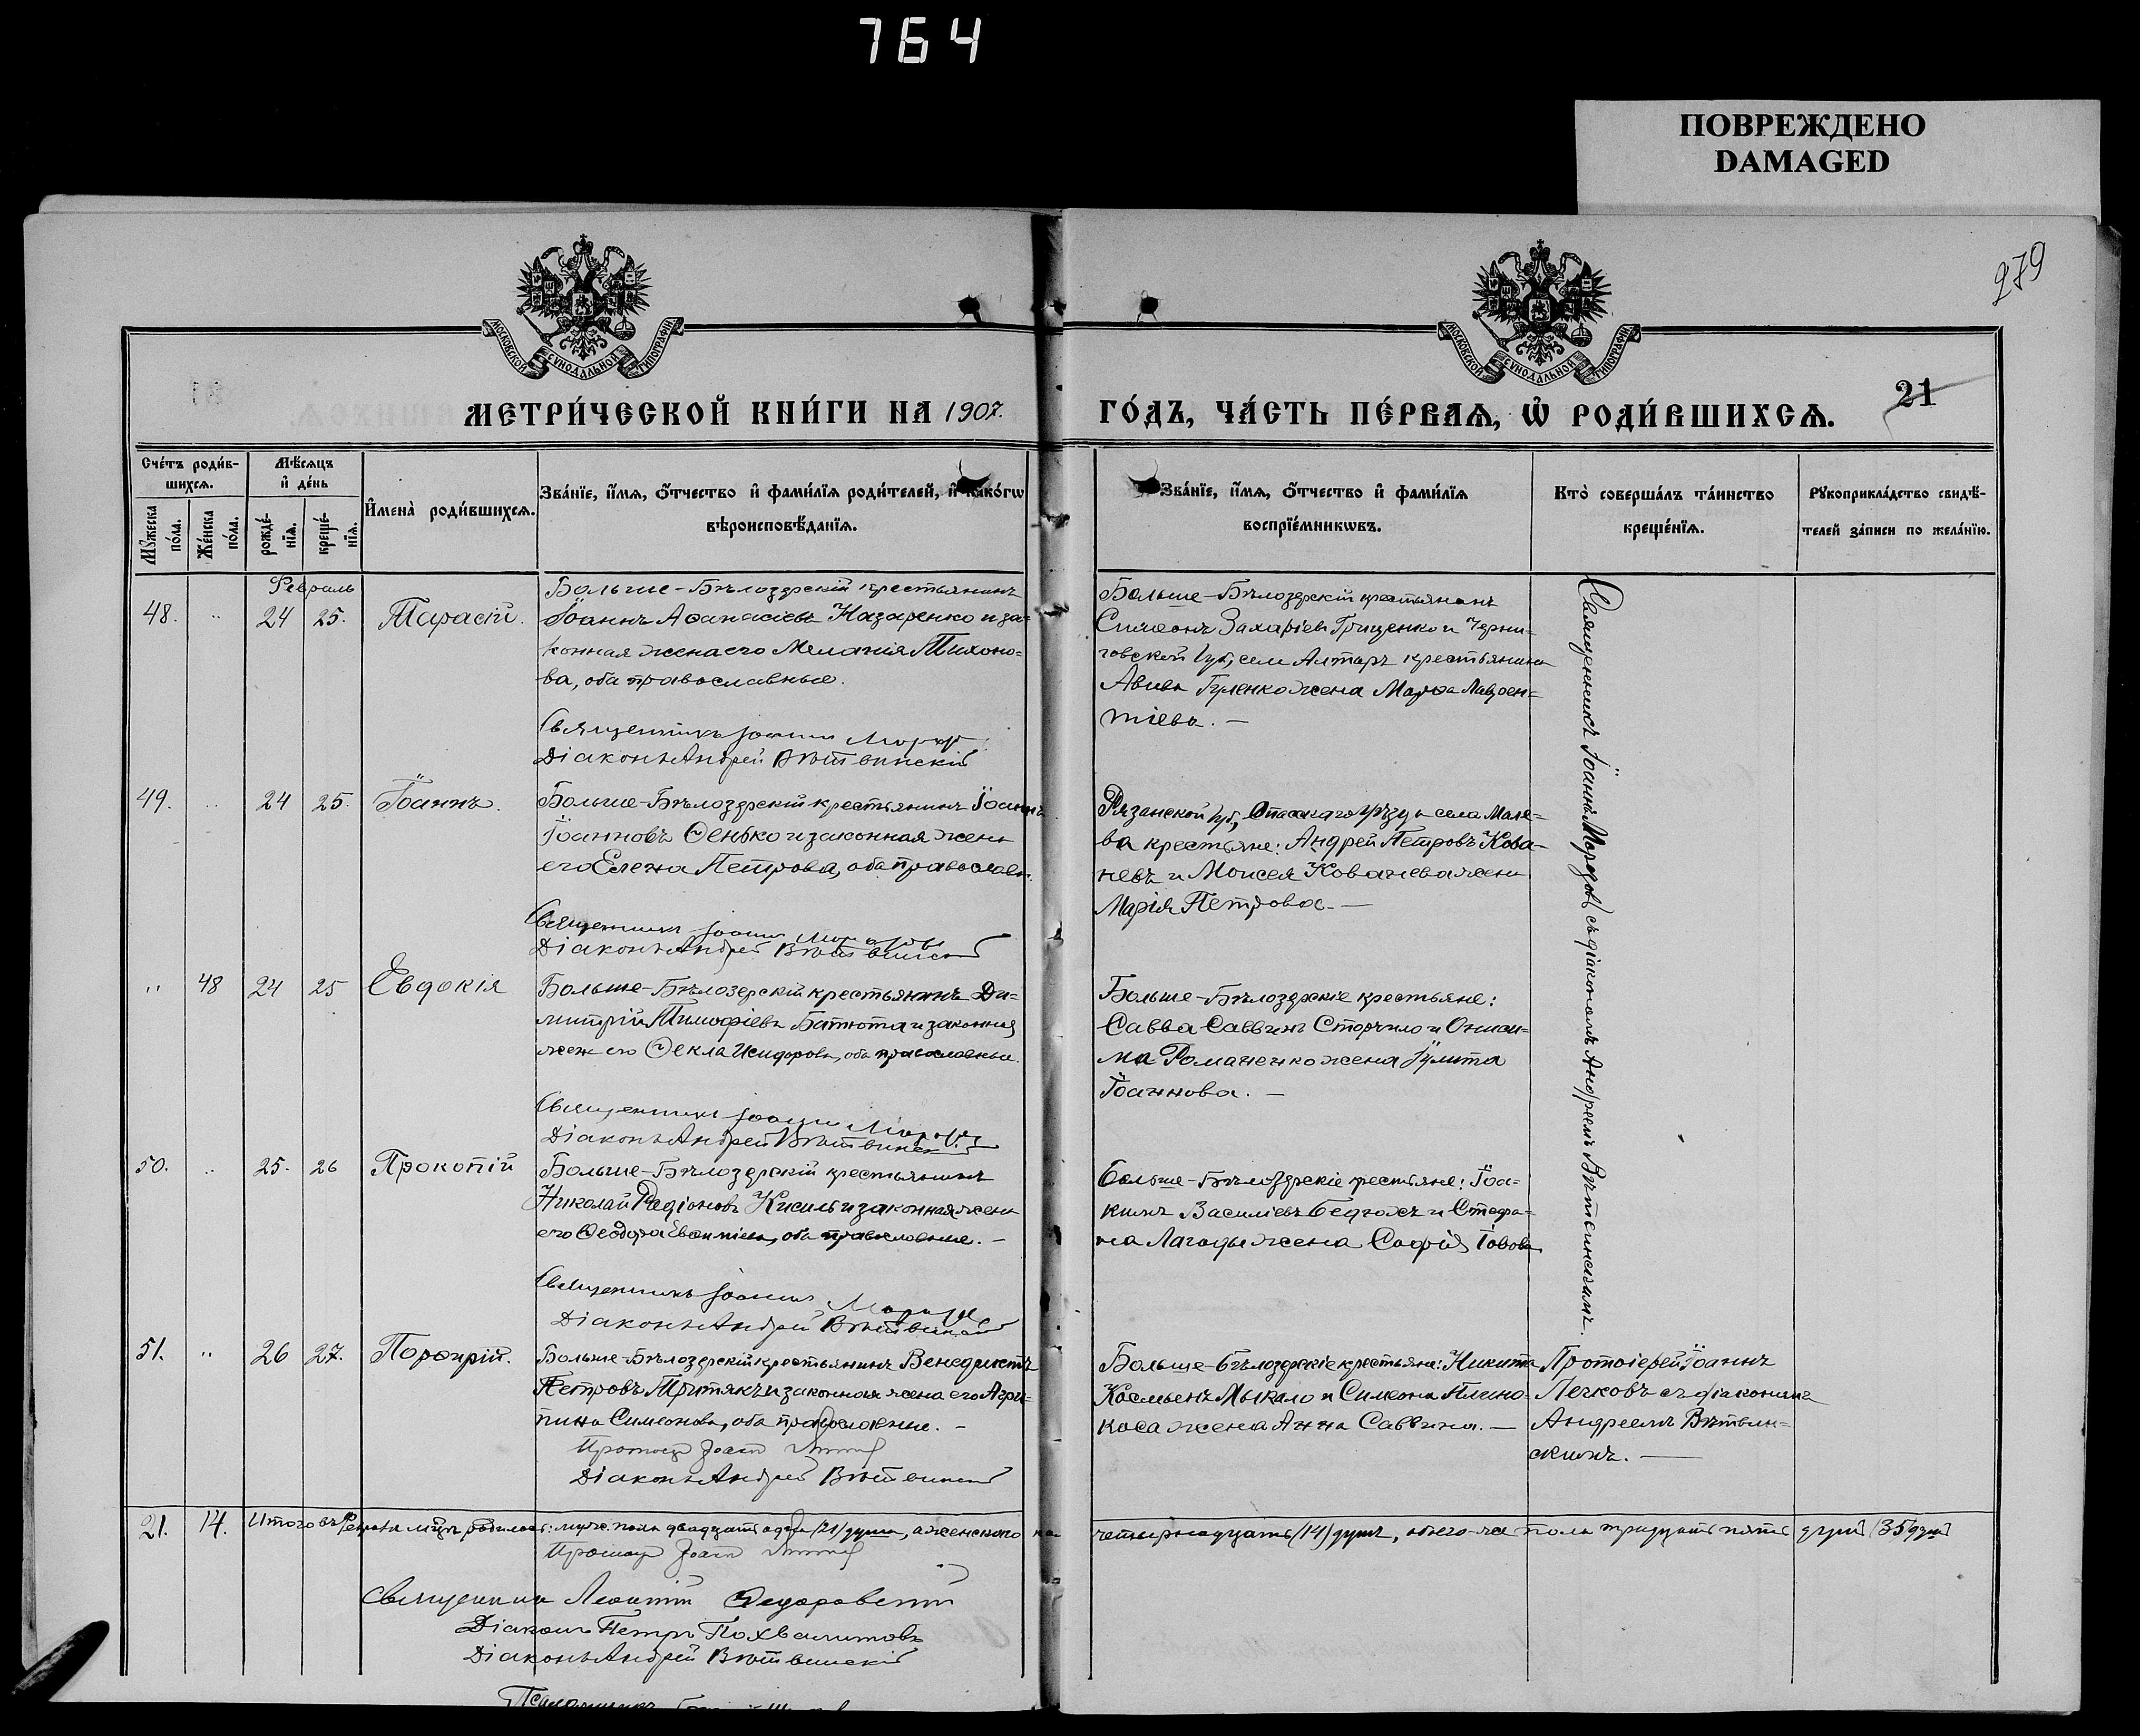 764
ПОВРЕЖДЕНО
DAMAGED
279
МОСКОВСКОЙ СѴНОДАЛЬНОЙ ТИПОГРАФІИ
МОСКОВСКОЙ СѴНОДАЛЬНОЙ ТИПОГРАФІИ
МЕТРИ́ЧЕСКОЙ КНИ́ГИ НА 1907.
ГО́ДЪ, ЧА́СТЬ ПЕ́РВАѦ, Ѡ҆ РОДИ́ВШИХСѦ.
21
Сче́тъ роди́в-
шихсѧ.
Мꙋ́жеска по́ла.
Же́нска по́ла.
Мѣ́сѧцъ
и҆ де́нь
рожде́нїѧ.
креще́нїѧ.
И҆мена̀ роди́вшихсѧ.
Зва́нїе, и҆́мѧ, ѻ҆́тчество и҆ фами́лїѧ роди́телей, и҆ како́гѡ
вѣроисповѣ́данїѧ.
Зва́нїе, и҆́мѧ, ѻ҆́тчество и҆ фами́лїѧ
воспрїе́мникѡвъ.
Кто̀ соверша́лъ та́инство
креще́нїѧ.
Рꙋкоприкла́дство свидѣ́-
телей за́писи по жела́нїю.
Февраль
48. " 24 25. Тарасій.
Больше-Бѣлозерскій крестьянинъ
Іоаннъ Аѳанасіевъ Назаренко и за-
конная жена его Меланія Тихоно-
ва, оба православные.
Священникъ Іоаннъ Морозовъ
Діаконъ Андрей Вѣтвинскій
Больше-Бѣлозерскій крестьянинъ
Симеонъ Захаріевъ Грищенко и Черни-
говской губ., села Алтаръ крестьянина
Авива Гуленко жена Марѳа Лаврен-
тіева. —
49. " 24 25. Іоаннъ.
Больше-Бѣлозерскій крестьянинъ Іоаннъ
Іоанновъ Ѳенько и законная жена
его Елена Петрова, оба православн.
Священникъ Іоаннъ Морозовъ
Діаконъ Андрей Вѣтвинскій
Рязанской губ., Спасскаго уѣзда села
крестьяне: Андрей Петровъ Кова-
невъ и Моисея Кованева жена
Марія Петрова. —
" 48 24 25 Евдокія
Больше-Бѣлозерскій крестьянинъ Ди-
митрій Тимофіевъ Батюта и законная
жена его Ѳекла Исидорова, оба православные.
Священникъ Іоаннъ Морозовъ
Діаконъ Андрей Вѣтвинскій
Больше-Бѣлозерскіе крестьяне:
Савва Саввинъ Сторчило и Ониси-
ма Романенко жена Іулита
Іоаннова. —
50. " 25. 26 Прокопій
Больше-Бѣлозерскій крестьянинъ
Николай Родіоновъ Кисиль и законная жена
его Ѳеодора, оба православные. —
Священникъ Іоаннъ Морозовъ
Діаконъ Андрей Вѣтвинскій
Больше-Бѣлозерскіе крестьяне: Іоа-
кимъ Василіевъ и Стефа-
на Лагоды жена Софія Іовова
Священникъ Іоаннъ Морозовъ съ діакономъ Андреемъ Вѣтвинскимъ.
51. " 26 27. Порфирій.
Больше-Бѣлозерскій крестьянинъ Венедиктъ
Петровъ Притякъ и законная жена его Агри-
пина Симеонова, оба православные. —
Протоіер Іоаннъ
Діаконъ Андрей Вѣтвинскій
Больше-Бѣлозерскіе крестьяне: Никита
Косьминъ Мыкало и Симеона Плино-
коса жена Анна Саввина. —
Протоіерей Іоаннъ
Печковъ съ діакономъ
Андреемъ Вѣтвин-
скимъ. —
21. 14. Итого въ Февралѣ мцѣ родилось: муж. пола двадцать одна (21) душа, а женского
четырнадцать (14) душъ, обоего-же пола тридцать пять душъ (35) душ
Протоіер Іоаннъ
Священникъ Леонтій
Діаконъ Петръ Похвалитовъ
Діаконъ Андрей Вѣтвинскій
Псаломщикъ